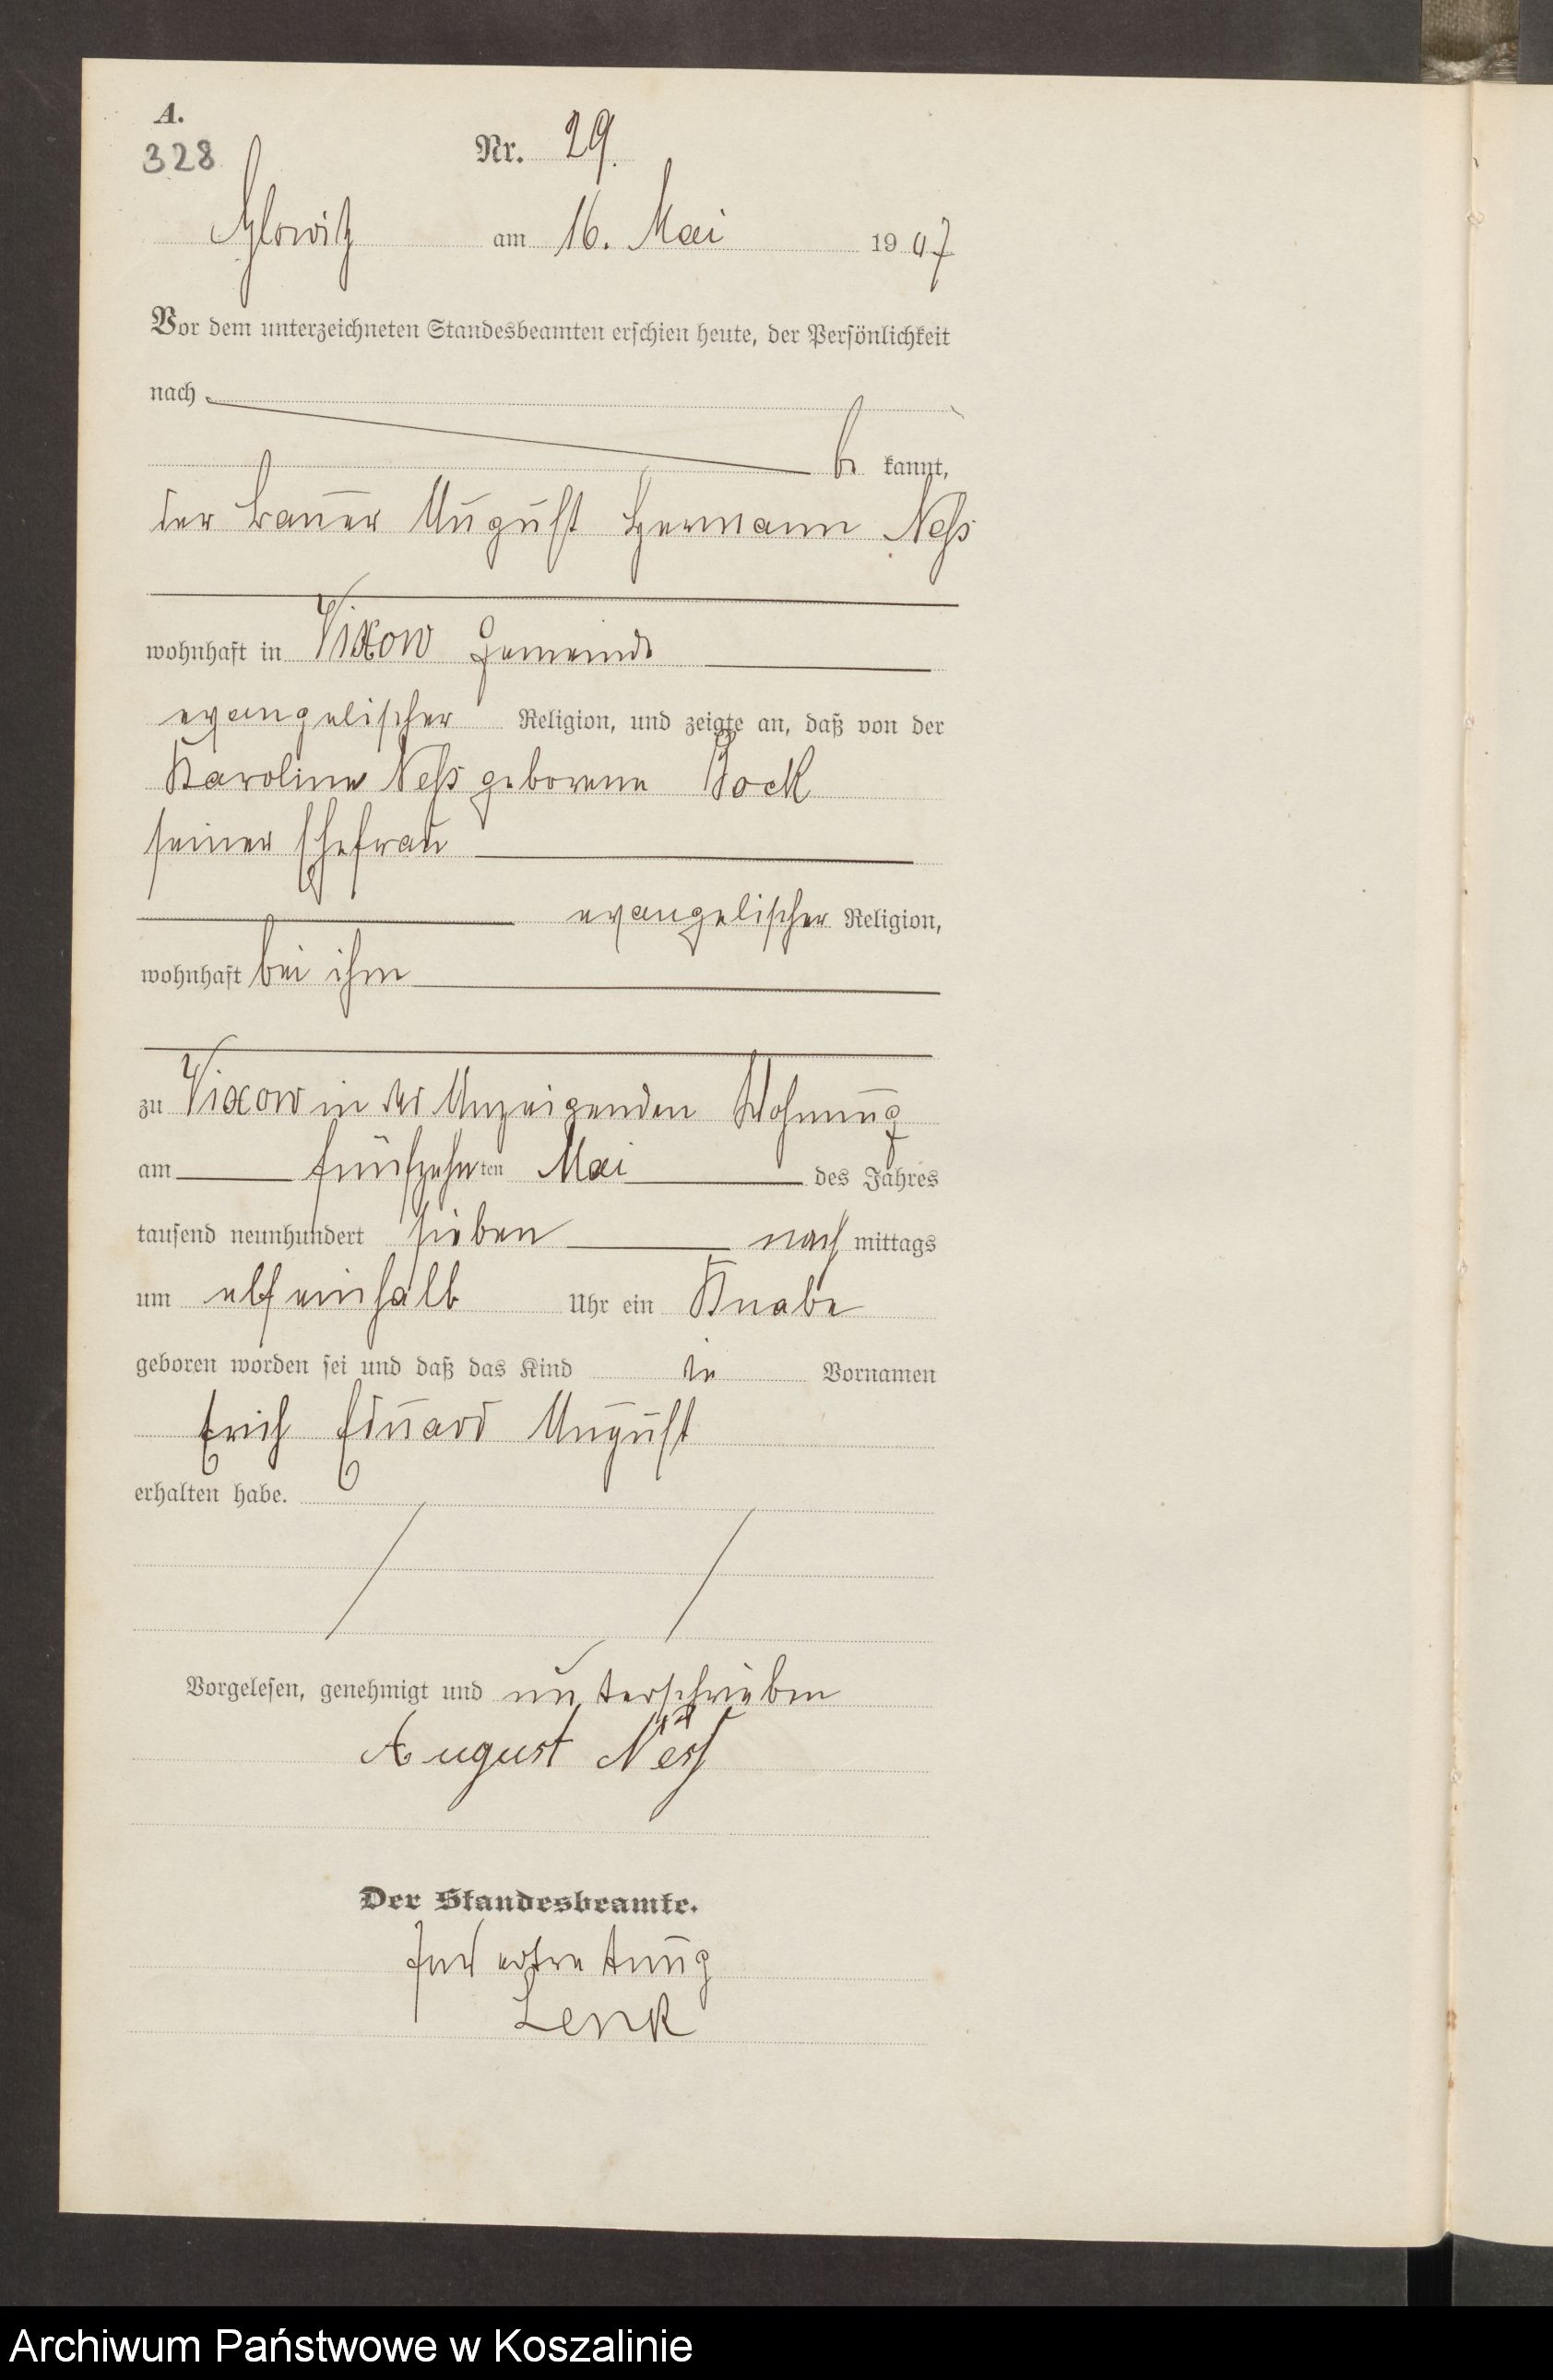 A.
328
Nr. 29.
Glowitz am 16. Mai 1907
Vor dem unterzeichneten Standesbeamten erschien heute, der Persönlichkeit
nach
be kannt,
der Bauer August Hermann Neß
wohnhaft in Vixow Gemeinde
evangelischer Religion, und zeigte an, daß von der
Karoline Neß geborene Bock
seiner Ehefrau
evangelischer Religion,
wohnhaft bei ihm
zu Vixow in des Anzeigenden Wohnung
am fünfzehnten Mai des Jahres
tausend neunhundert sieben nach mittags
um elfeinhalb Uhr ein Knabe
geboren worden sei und daß das Kind die Vornamen
Erich Eduard August
erhalten habe.
Vorgelesen, genehmigt und unterschrieben
August Neß
Der Standesbeamte.
In Vertretung
Lenk
Archiwum Państwowe w Koszalinie